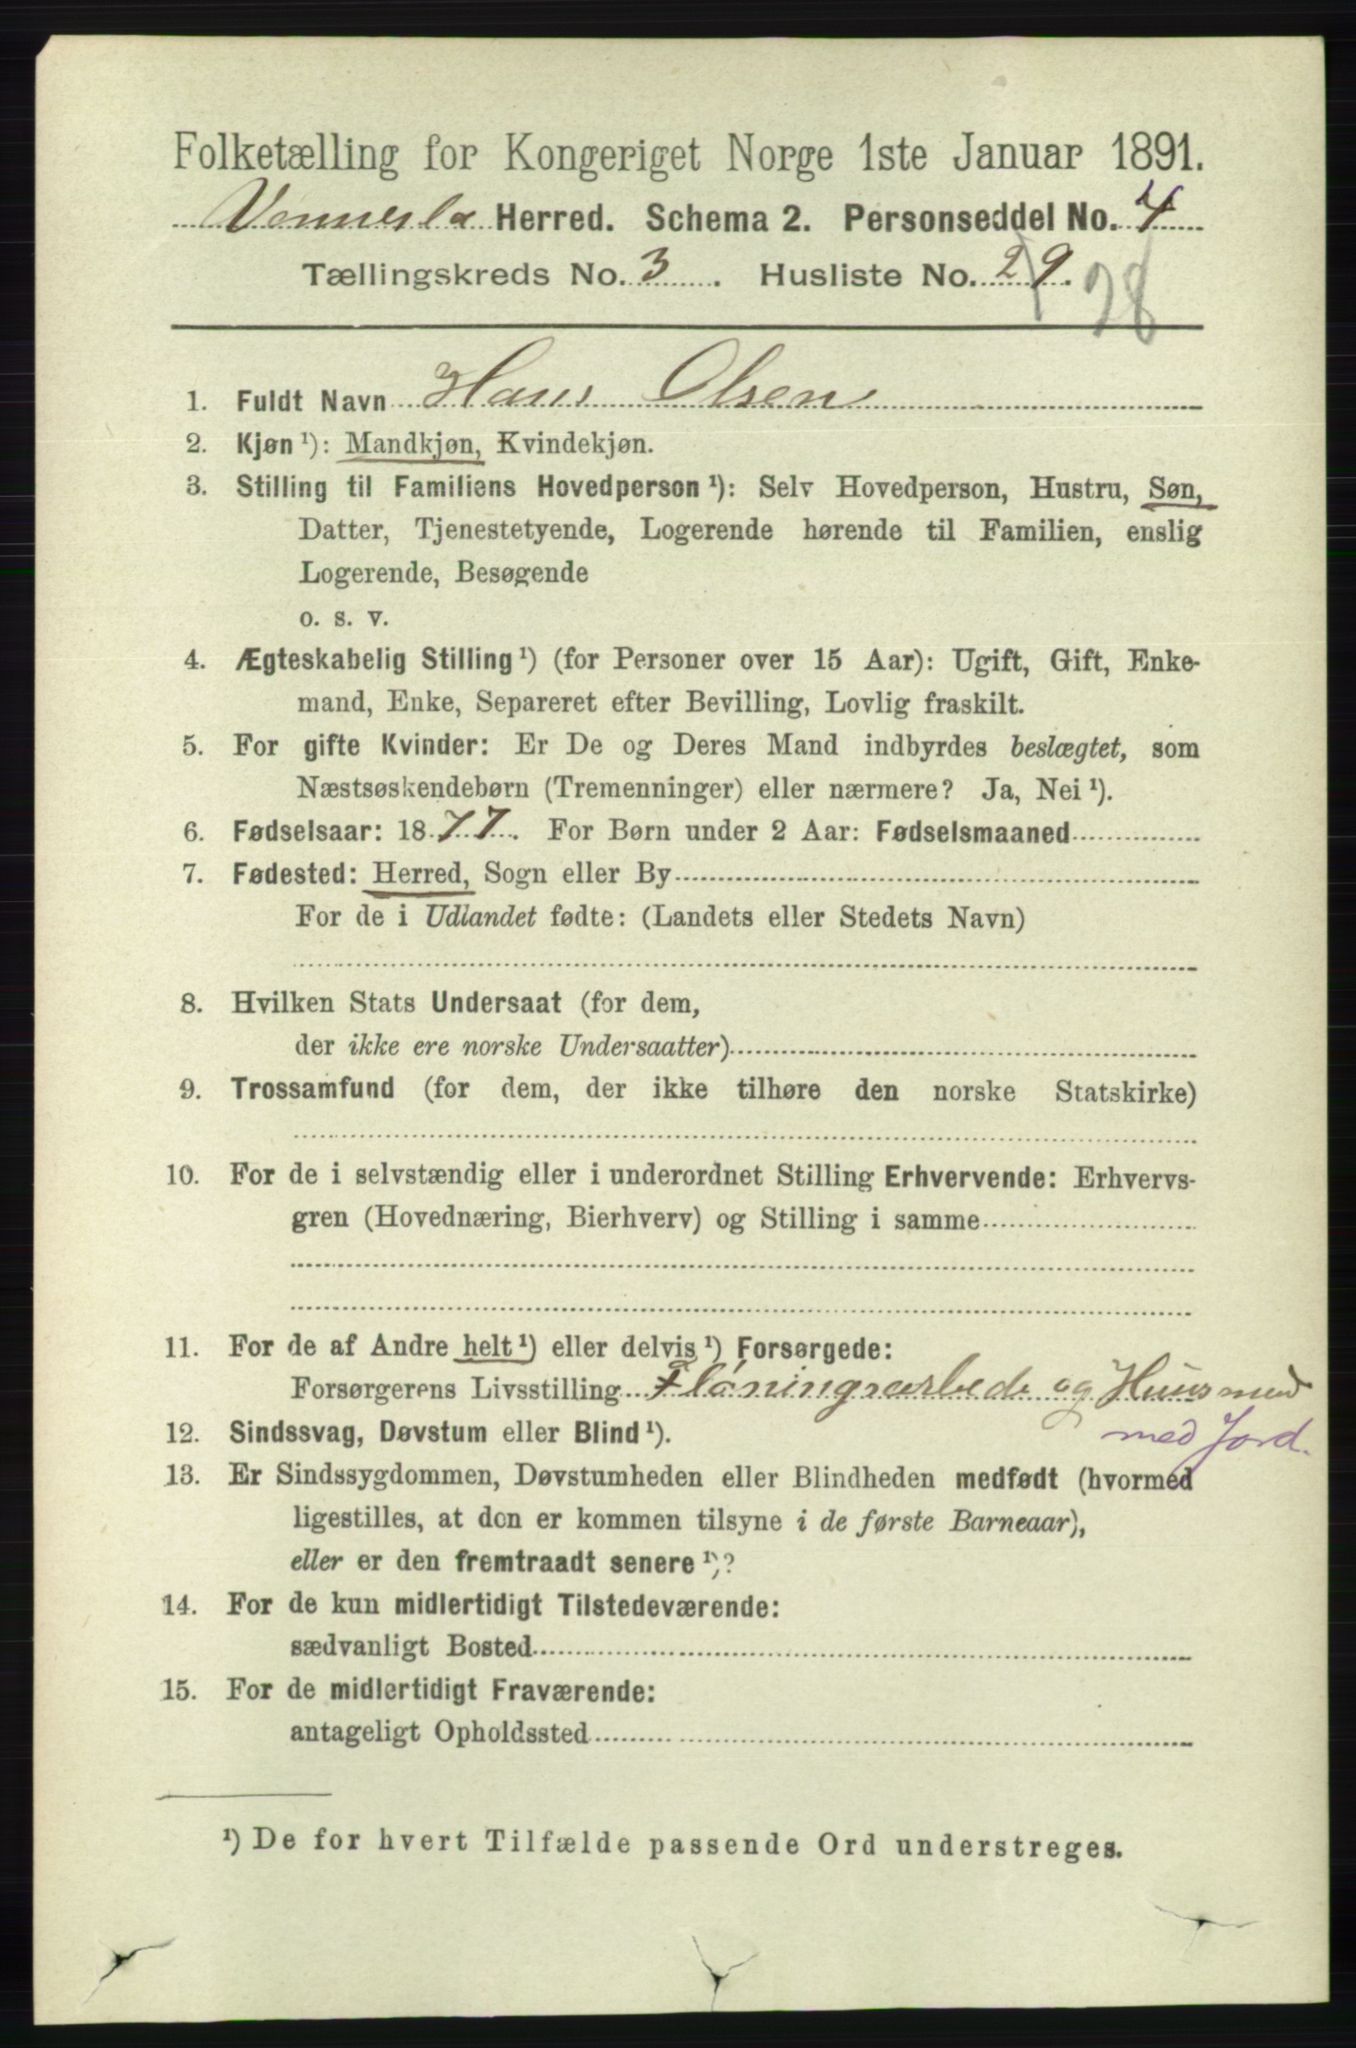 Folketælling for Kongeriget Norge 1ste Januar 1891.
Vennesla Herred. Schema 2. Personseddel No. 4
Tællingskreds No. 3. Husliste No. 29. 28
1. Fuldt Navn Hans Olsen
2. Kjøn ¹): Mandkjøn, Kvindekjøn.
3. Stilling til Familiens Hovedperson ¹): Selv Hovedperson, Hustru, Søn,
Datter, Tjenestetyende, Logerende hørende til Familien, enslig
Logerende, Besøgende
o. s. v.
4. Ægteskabelig Stilling ¹) (for Personer over 15 Aar): Ugift, Gift, Enke-
mand, Enke, Separeret efter Bevilling, Lovlig fraskilt.
5. For gifte Kvinder: Er De og Deres Mand indbyrdes beslægtet, som
Næstsøskendebørn (Tremenninger) eller nærmere? Ja, Nei ¹).
6. Fødselsaar: 1877. For Børn under 2 Aar: Fødselsmaaned
7. Fødested: Herred, Sogn eller By
For de i Udlandet fødte: (Landets eller Stedets Navn)
8. Hvilken Stats Undersaat (for dem,
der ikke ere norske Undersaatter)
9. Trossamfund (for dem, der ikke tilhøre den norske Statskirke)
10. For de i selvstændig eller i underordnet Stilling Erhvervende: Erhvervs-
gren (Hovednæring, Bierhverv) og Stilling i samme
11. For de af Andre helt ¹) eller delvis ¹) Forsørgede:
Forsørgerens Livsstilling Fløningsarbede og Huusmand
med Jord.
12. Sindssvag, Døvstum eller Blind ¹).
13. Er Sindssygdommen, Døvstumheden eller Blindheden medfødt (hvormed
ligestilles, at den er kommen tilsyne i de første Barneaar),
eller er den fremtraadt senere ¹)?
14. For de kun midlertidigt Tilstedeværende:
sædvanligt Bosted
15. For de midlertidigt Fraværende:
antageligt Opholdssted
¹) De for hvert Tilfælde passende Ord understreges.